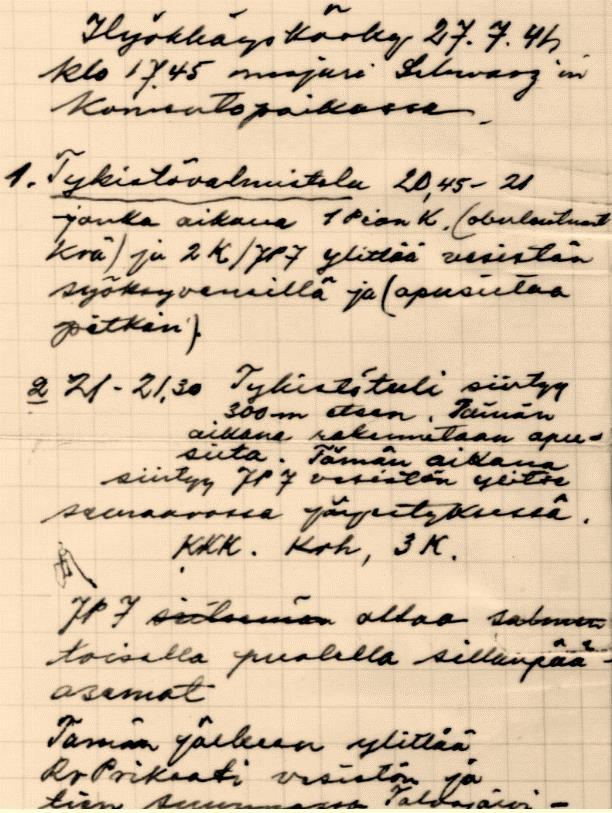 Hyökkäyskäsky 27.7.41
klo 17.45 majuri Schwarz'in
Komentopaikassa.
1. Tykistövalmistelu 20,45 - 21
jonka aikana 1 Pion K. (
Krä) ja 2 K/JP7 ylittää vesistön
syöksyveneillä ja (apusiltaa
pitkin).
2 21 - 21,30 Tykistötuli siirtyy
300m eteen. Tämän
aikana rakennetaan apu=
silta. Tämän aikana
siirtyy JP7 vesistön ylitse
seuraavassa järjestyksessä.
KKK. Krh, 3 K.
JP7 ottaa salmen
toisella puolella sillanpää-
asemat
Tämän jälkeen ylittää
Rv Prikaati vesistön ja